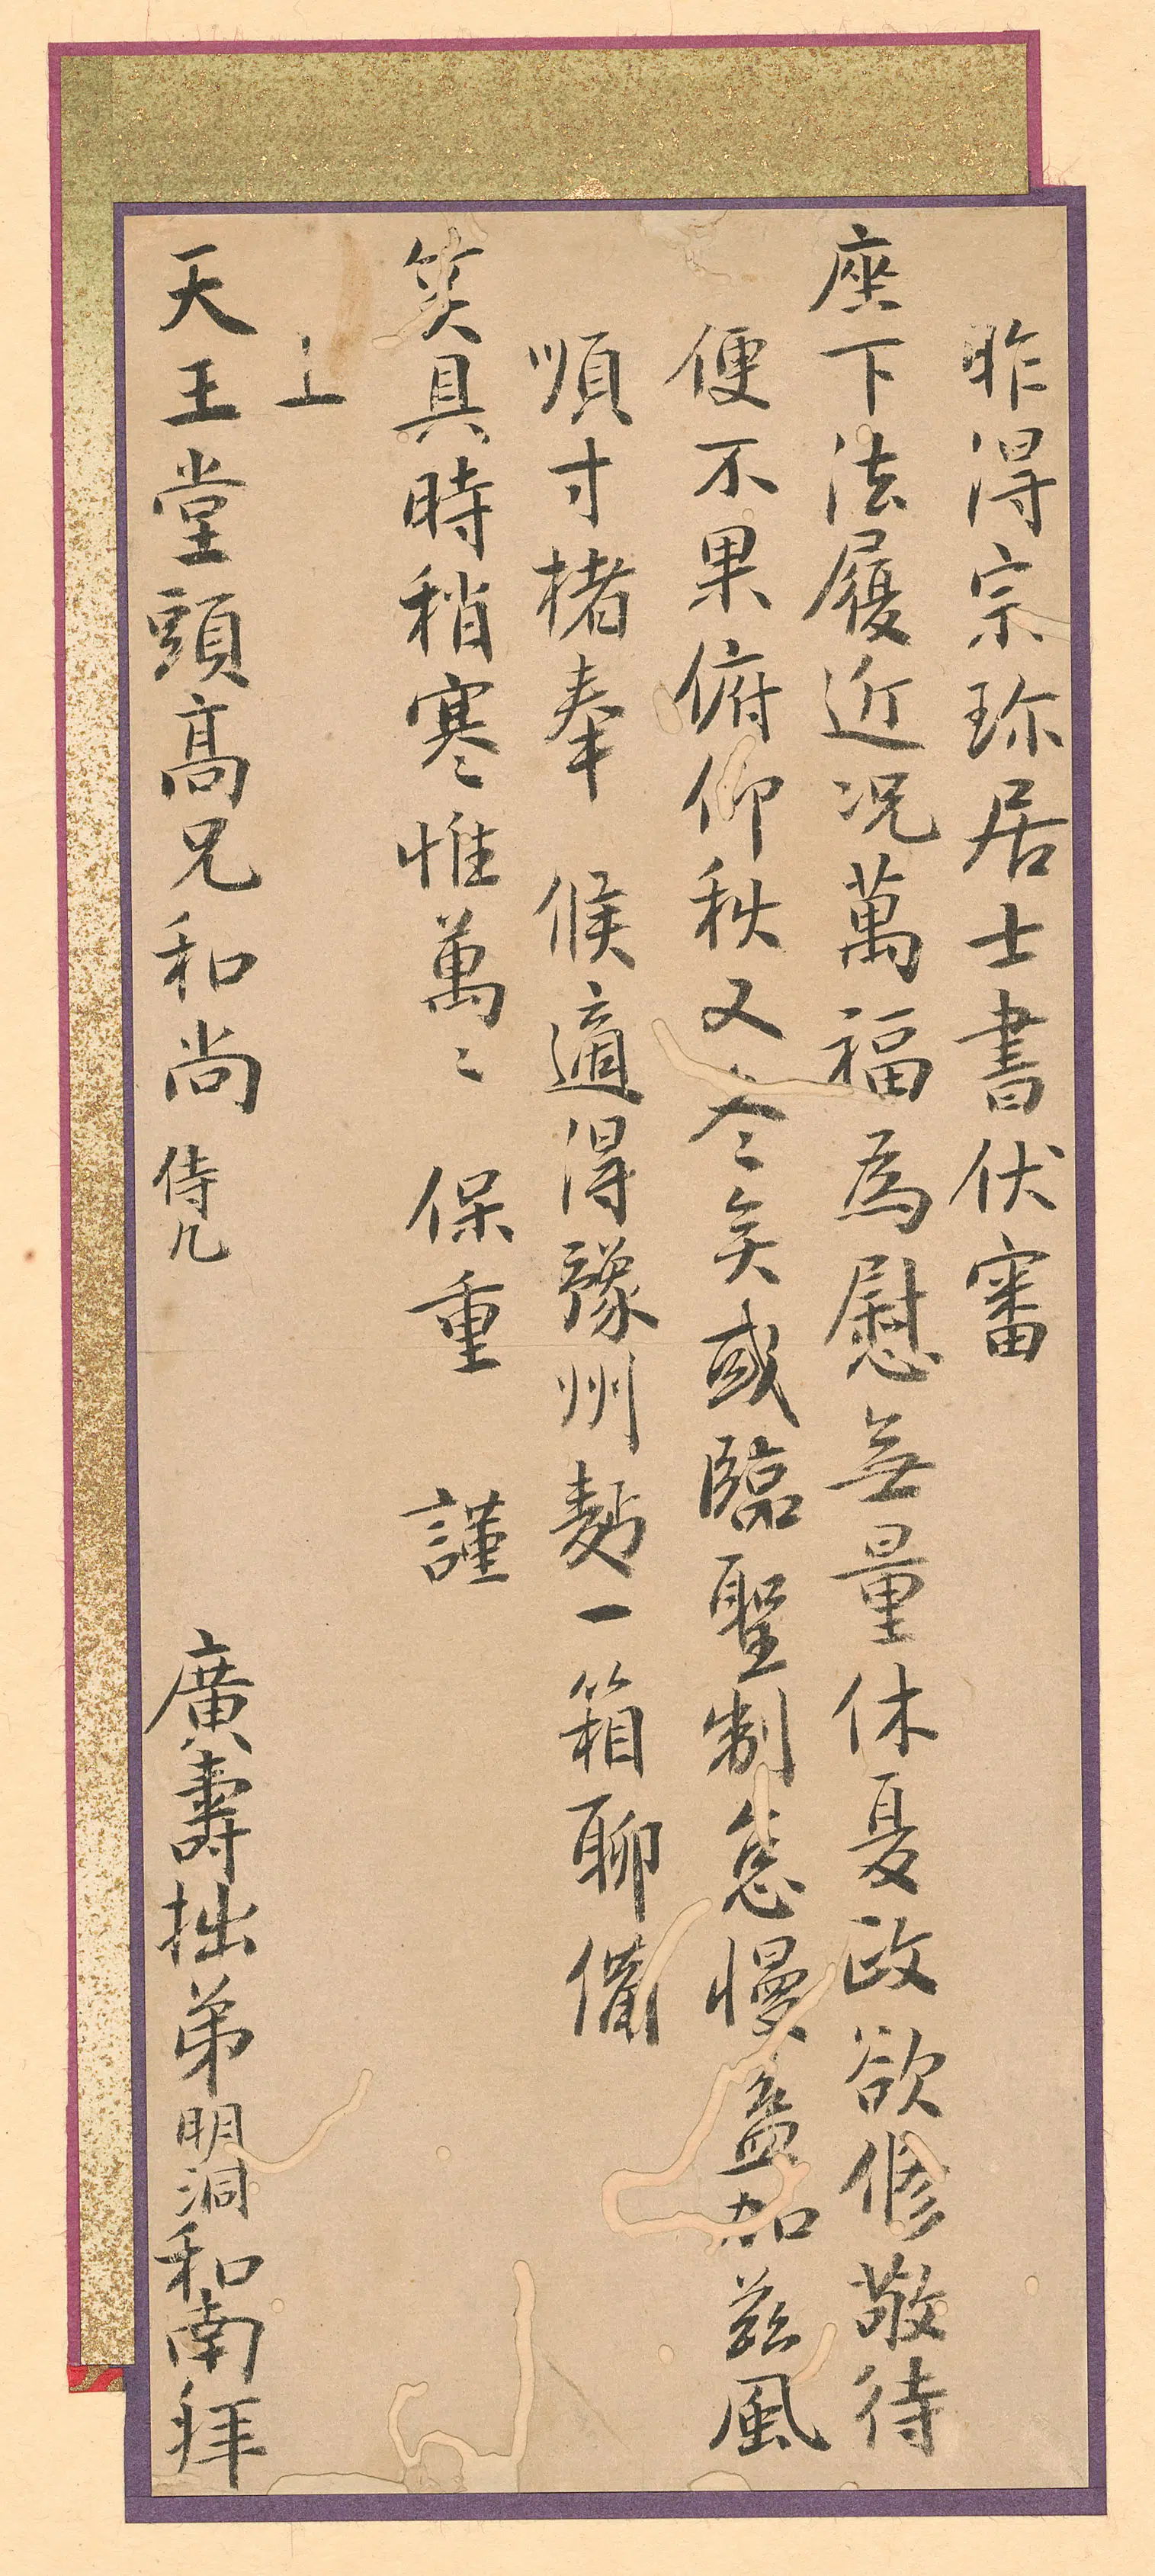 昨得宗珎居士書伏審
座下法履近況萬福為慰無量休夏政欲修敬待
便不果俯仰秋又令〻矣或臨聖制怠慢益加茲風
順寸楮奉　候適得豫州麪一箱聊備
笑具時稍寒惟萬〻　保重　謹
上
天王堂頭高兄和尚 侍几
廣壽拙弟明洞和南拜